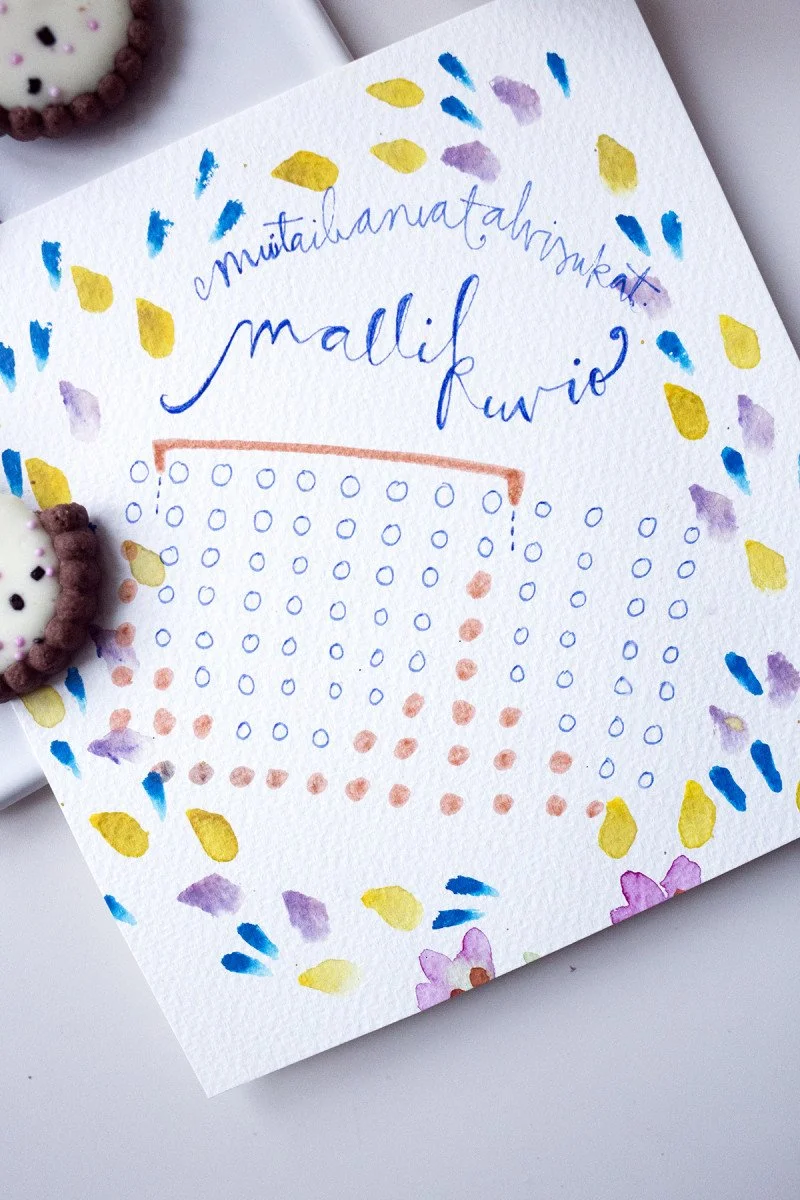 muitaihaniatalvisukat.
malli
kuvio